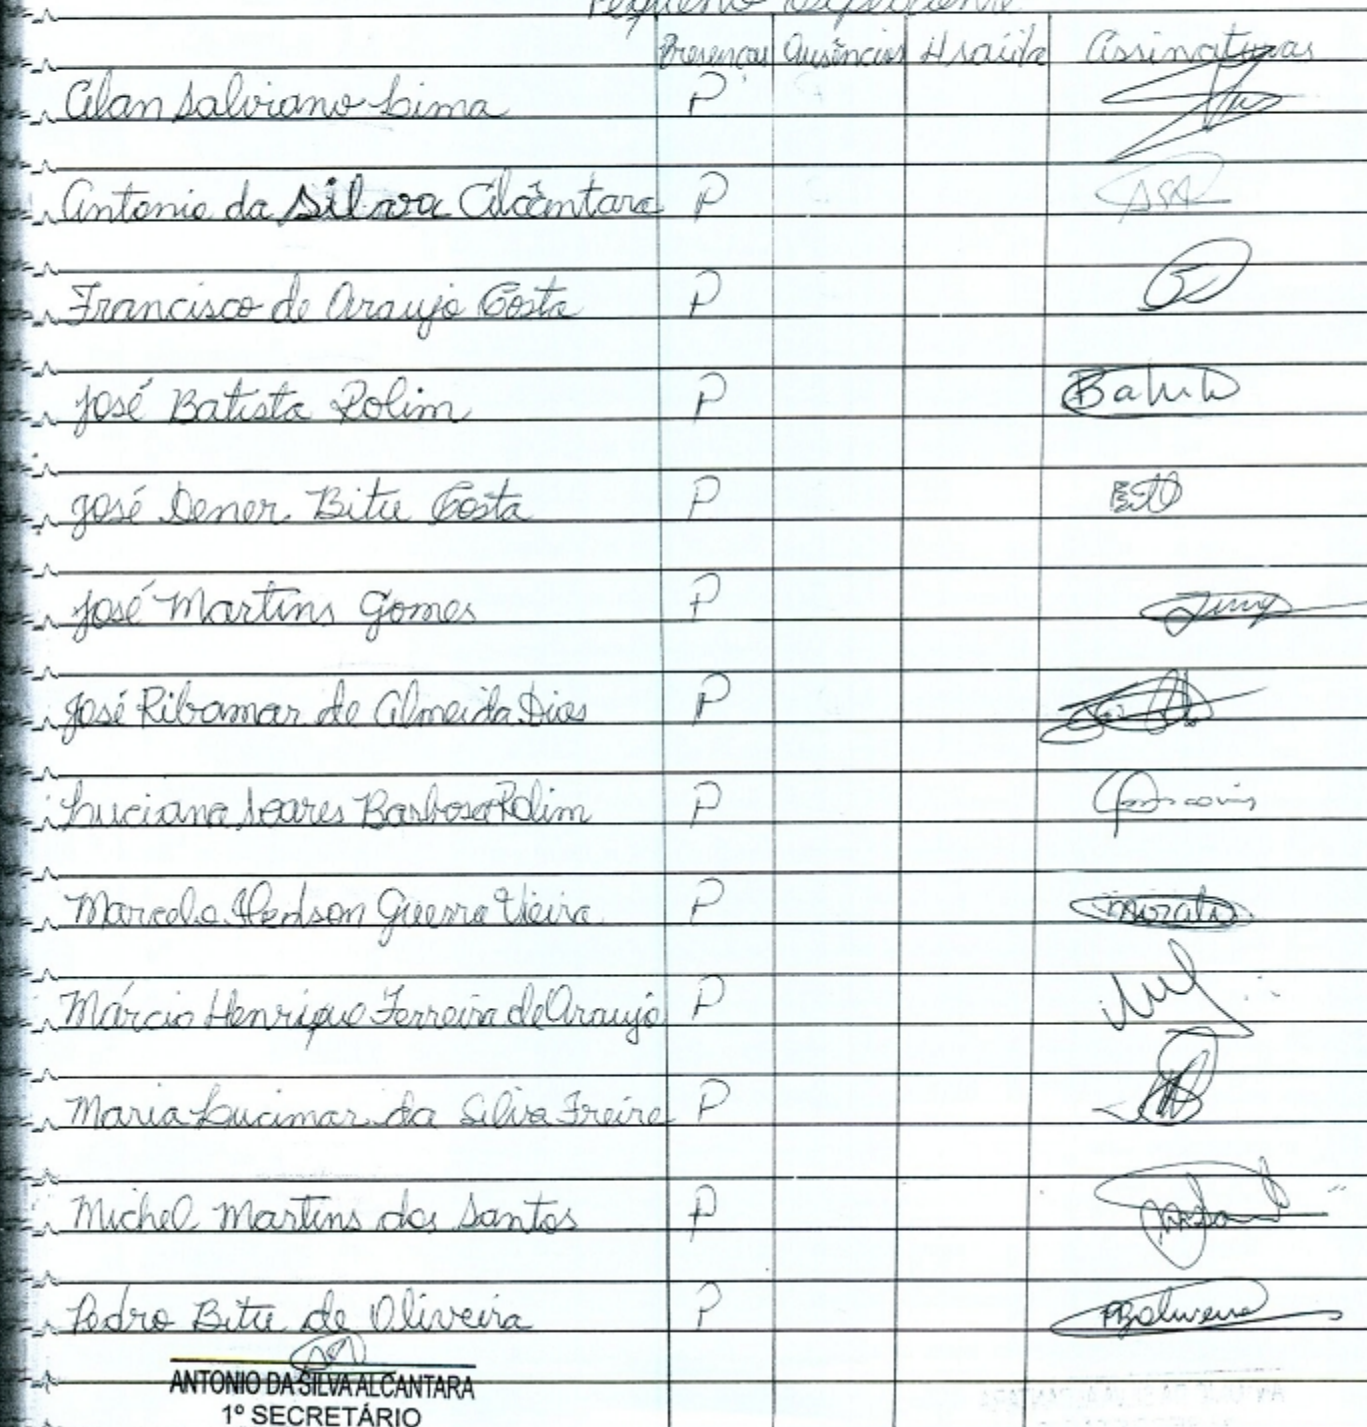 Pequeno Expediente
Presenças Ausências H saída Assinaturas
Alan Salviano Lima P
Antonio da Silva Alcântara P
Francisco de Araujo Costa P
José Batista Rolim P Batista
José Dener Bitu Costa P
José Martins Gomes P
José Ribamar de Almeida Dias P
Luciana Soares Barbosa Rolim P
Marcelo Hedson Guerra Vieira P
Márcio Henrique Ferreira de Araujo P
Maria Lucimar da Silva Freire P
Michel Martins dos Santos P
Pedro Bitu de Oliveira P PBoliveira
ANTONIO DA SILVA ALCANTARA
1º SECRETÁRIO